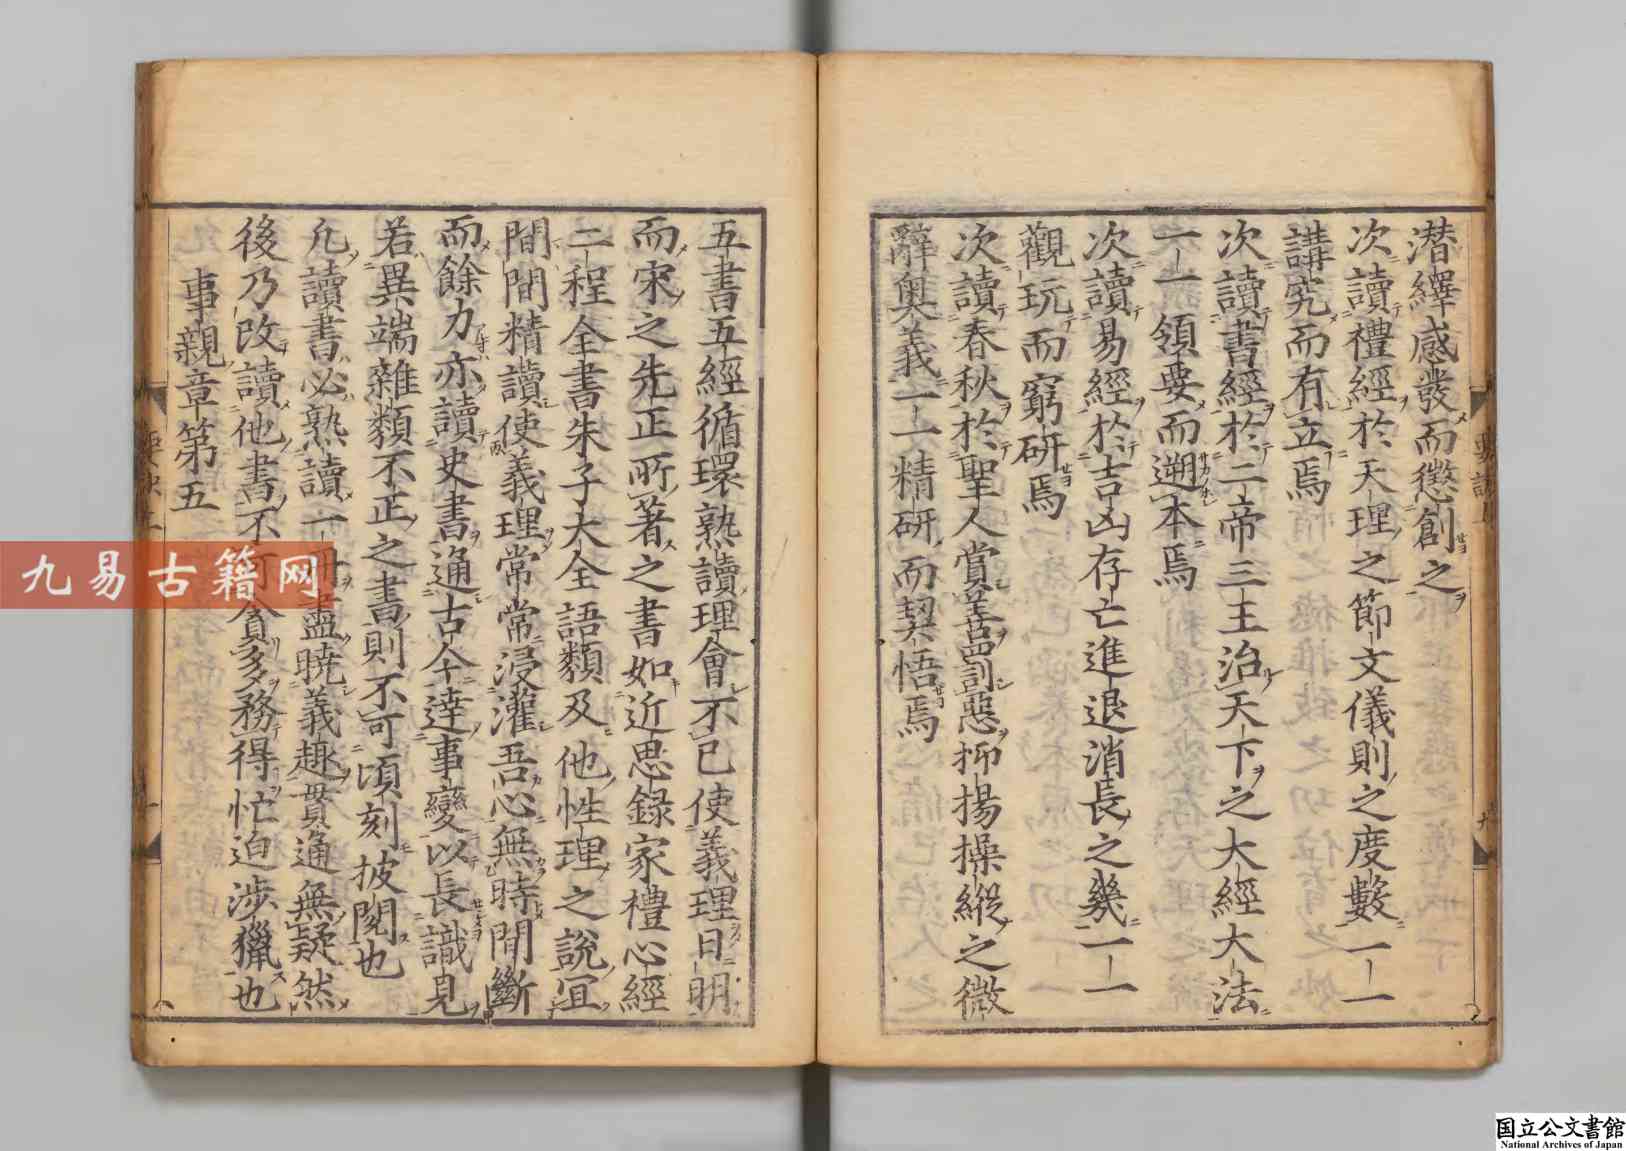 潜繹感發而懲創之
次讀禮經於天理之節文儀則之度數一一
講究而有立焉
次讀書經於二帝三王治天下之大經大法
一一領要而遡本焉
次讀易經於吉凶存亡進退消長之幾一一
觀玩而窮研焉
次讀春秋於聖人賞善罰惡抑揚操縱之微
辭奥義一一精研而契悟焉
五書五經循環熟讀理會不已使義理日明
而宋之先正所著之書如近思錄家禮心經
二程全書朱子大全語類及他性理之說宜
間間精讀使義理常常浸灌吾心無時間斷
而餘力亦讀史書通古今達事變以長識見
若異端雜類不正之書則不可頃刻披閱也
凢讀書必熟讀一冊盡暁義趣貫通無疑然
後乃改讀他書不可貪多務得忙迫涉獵也
事親章第五
九易古籍网
国立公文書館
National Archives of Japan